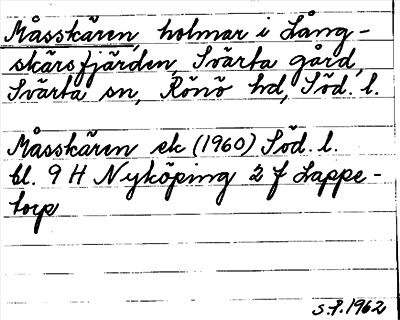 Måsskären, holmar i Lång-
skärsfjärden, Svärta gård,
Svärta sn, Rönö hd, Söd. l.
Måsskären ek (1960) Söd. l.
bl. 9 H Nyköping 2 f Lappe-
torp
S.P. 1962